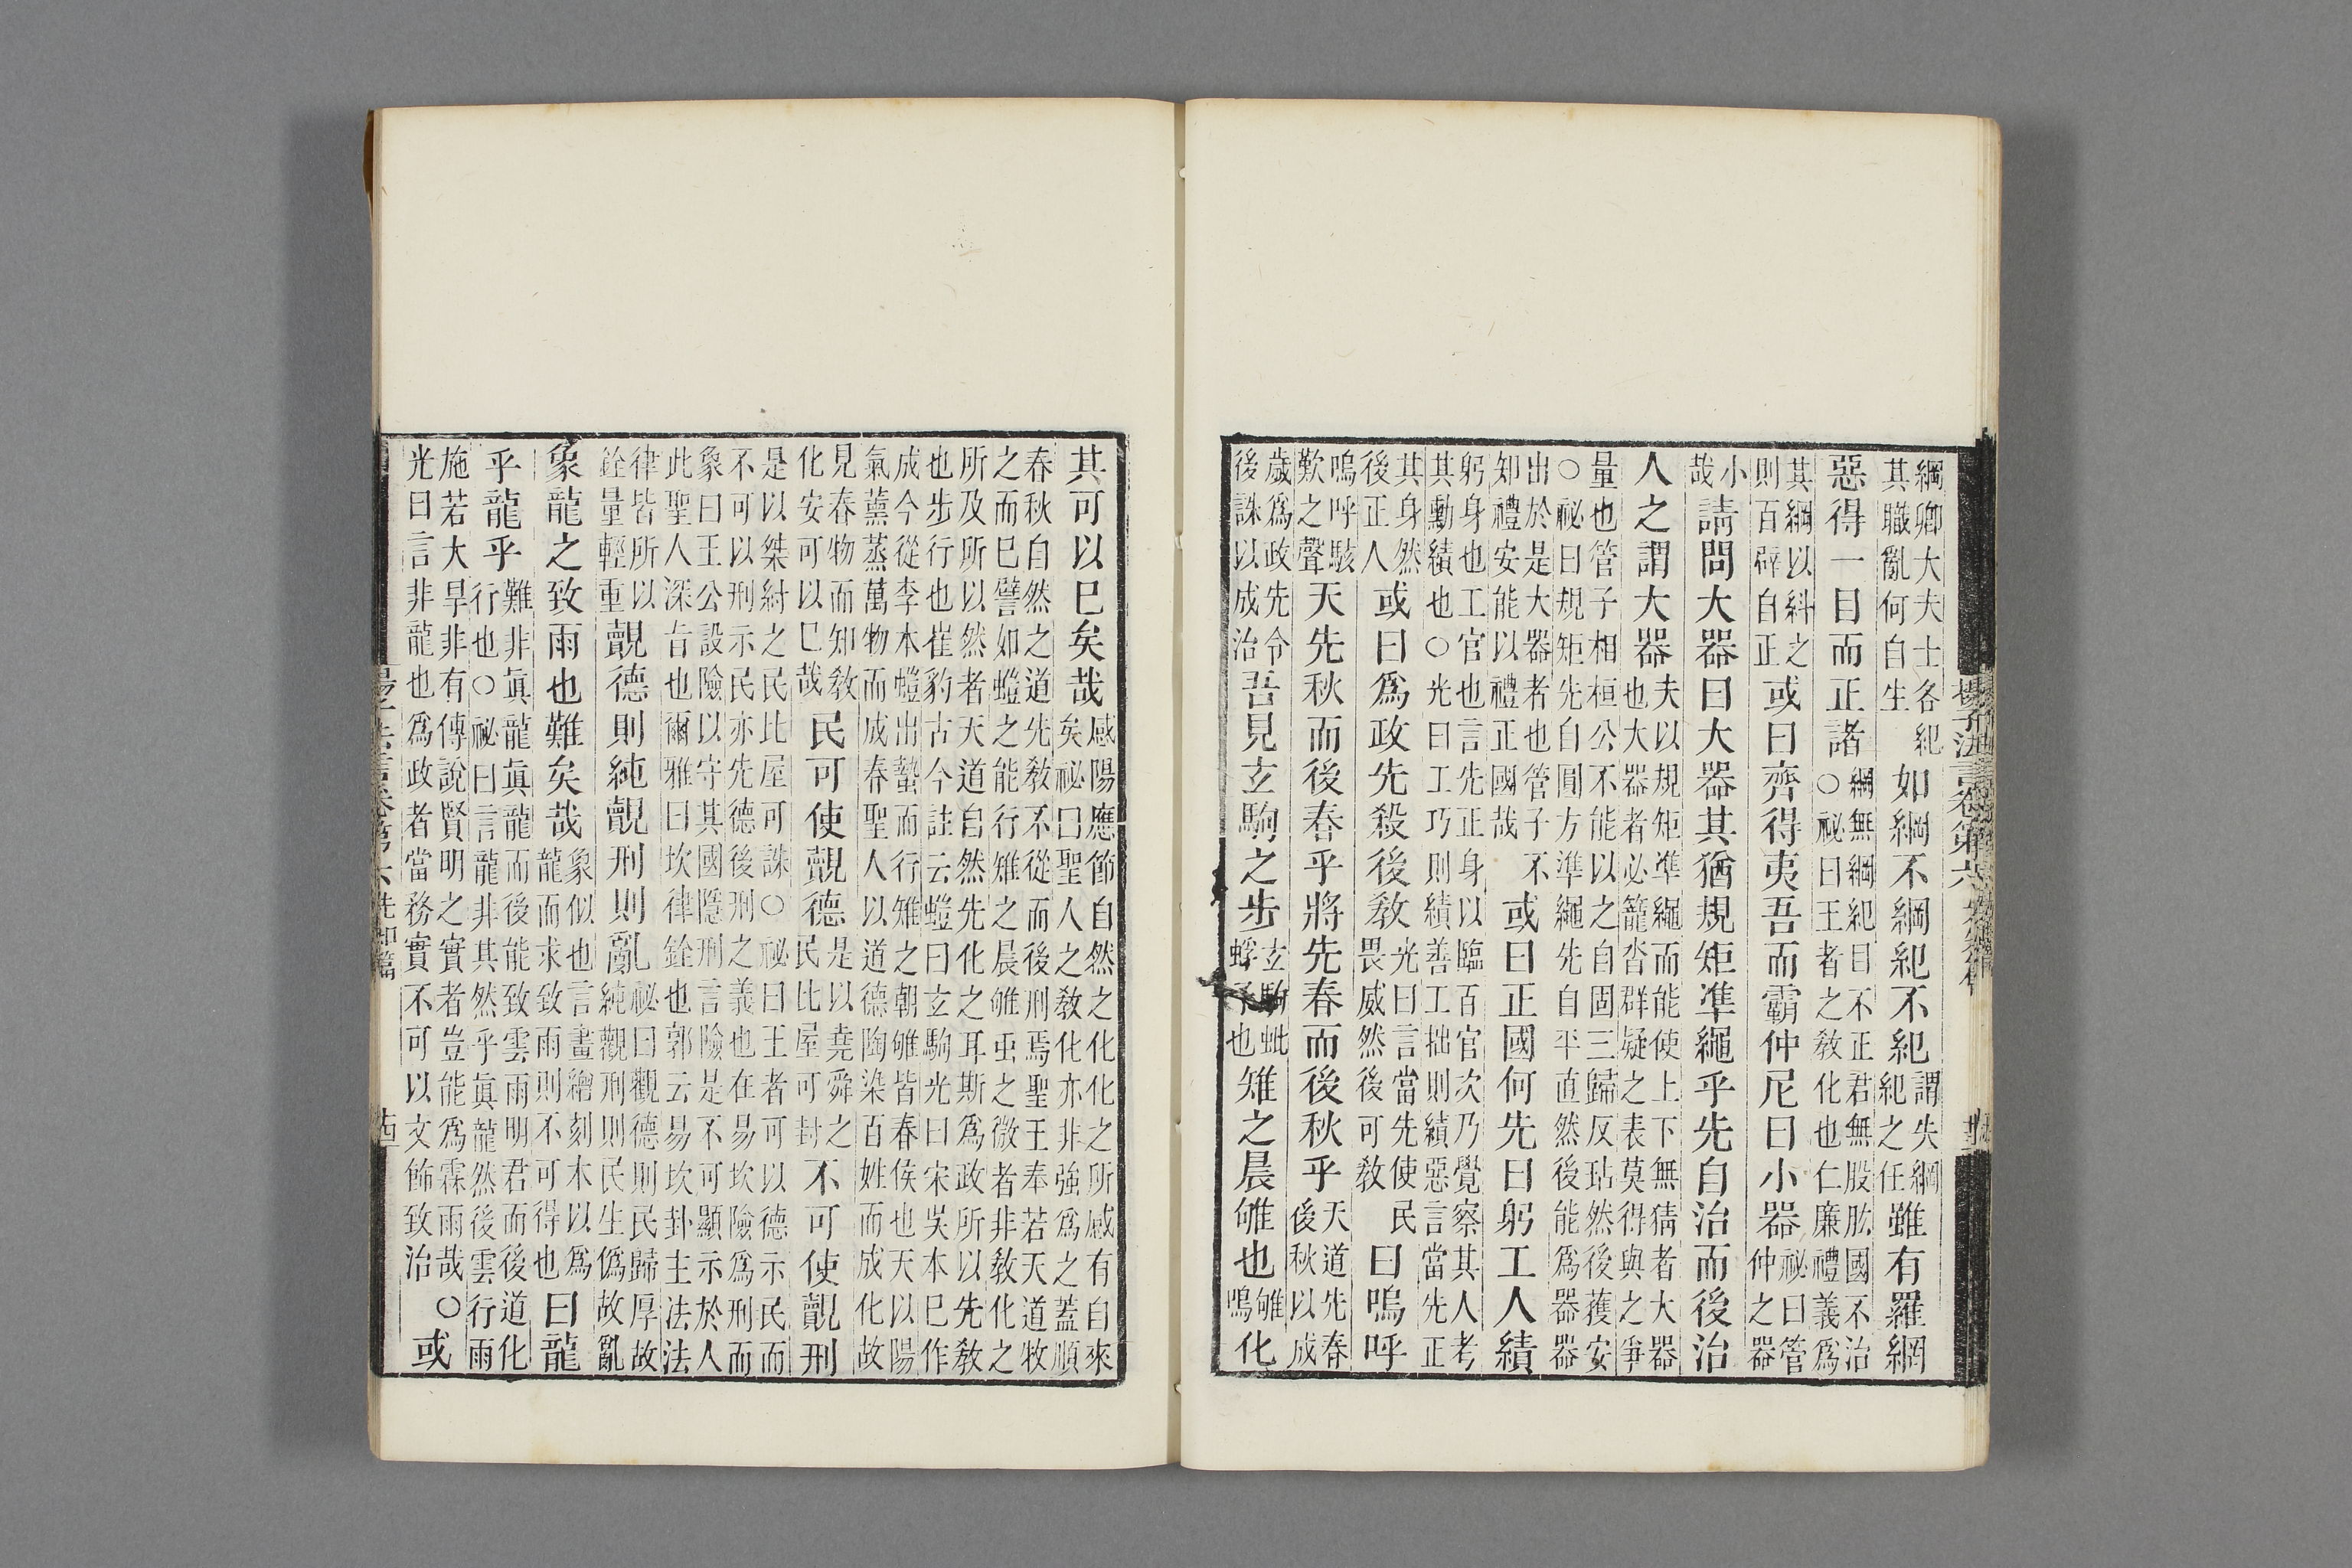 綱卿大夫士各紀其職亂何自生如綱不綱紀不紀謂失綱紀之任雖有羅網
惡得一目而正諸網無綱紀目不正君無股肱國不治○祕曰王者之敎化也仁廉禮義爲
其綱以糾之則百辟自正或曰齊得夷吾而霸仲尼曰小器祕曰管仲之器
小哉請問大器曰大器其猶規矩凖繩乎先自治而後治
人之謂大器夫以規矩凖繩而能使上下無猜者大器也大器者必籠沓群疑之表莫得與之爭
量也管子相桓公不能以之自固三歸反玷然後獲安○祕曰規矩先自圓方準繩先自平直然後能爲器器
出於是大器者也管子不知禮安能以禮正國哉或曰正國何先曰躬工人績
躬身也工官也言先正身以臨百官次乃覺察其人考其勳績也○光曰工巧則績善工拙則績惡言當先正
其身然後正人或曰爲政先殺後敎光曰言當先使民畏威然後可敎曰嗚呼
嗚呼駭歎之聲天先秋而後春乎將先春而後秋乎天道先春後秋以成
歲爲政先令後誅以成治吾見玄駒之步玄駒蚍蜉子也雉之晨雊也雊鳴化
其可以巳矣哉感陽應節自然之化化之所感有自來矣祕曰聖人之敎化亦非強爲之蓋順
春秋自然之道先敎不從而後刑焉聖王奉若天道牧之而巳譬如螘之能行雉之晨雊䖝之微者非敎化之
所及所以然者天道自然先化之耳斯爲政所以先敎也步行也崔豹古今註云螘曰玄駒光曰宋吳本巳作
成今從李本螘出蟄而行雉之朝雊皆春侯也天以陽氣薰蒸萬物而成春聖人以道德陶染百姓而成化故
見春物而知敎化安可以巳哉民可使覿德是以堯舜之民比屋可封不可使覿刑
是以桀紂之民比屋可誅○祕曰王者可以德示民而不可以刑示民亦先德後刑之義也在易坎險爲刑而
象曰王公設險以守其國隱刑言險是不可顯示於人此聖人深旨也爾雅曰坎律銓也郭云易坎卦主法法
律皆所以銓量輕重覿德則純覿刑則亂祕曰觀德則民歸厚故純觀刑則民生僞故亂
象龍之致雨也難矣哉象似也言畫繪刻木以爲龍而求致雨則不可得也曰龍
乎龍乎難非眞龍眞龍而後能致雲雨明君而後道化行也○祕曰言龍非其然乎眞龍然後雲行雨
施若大旱非有傳說賢明之實者豈能爲霖雨哉○光曰言非龍也爲政者當務實不可以文飾致治或